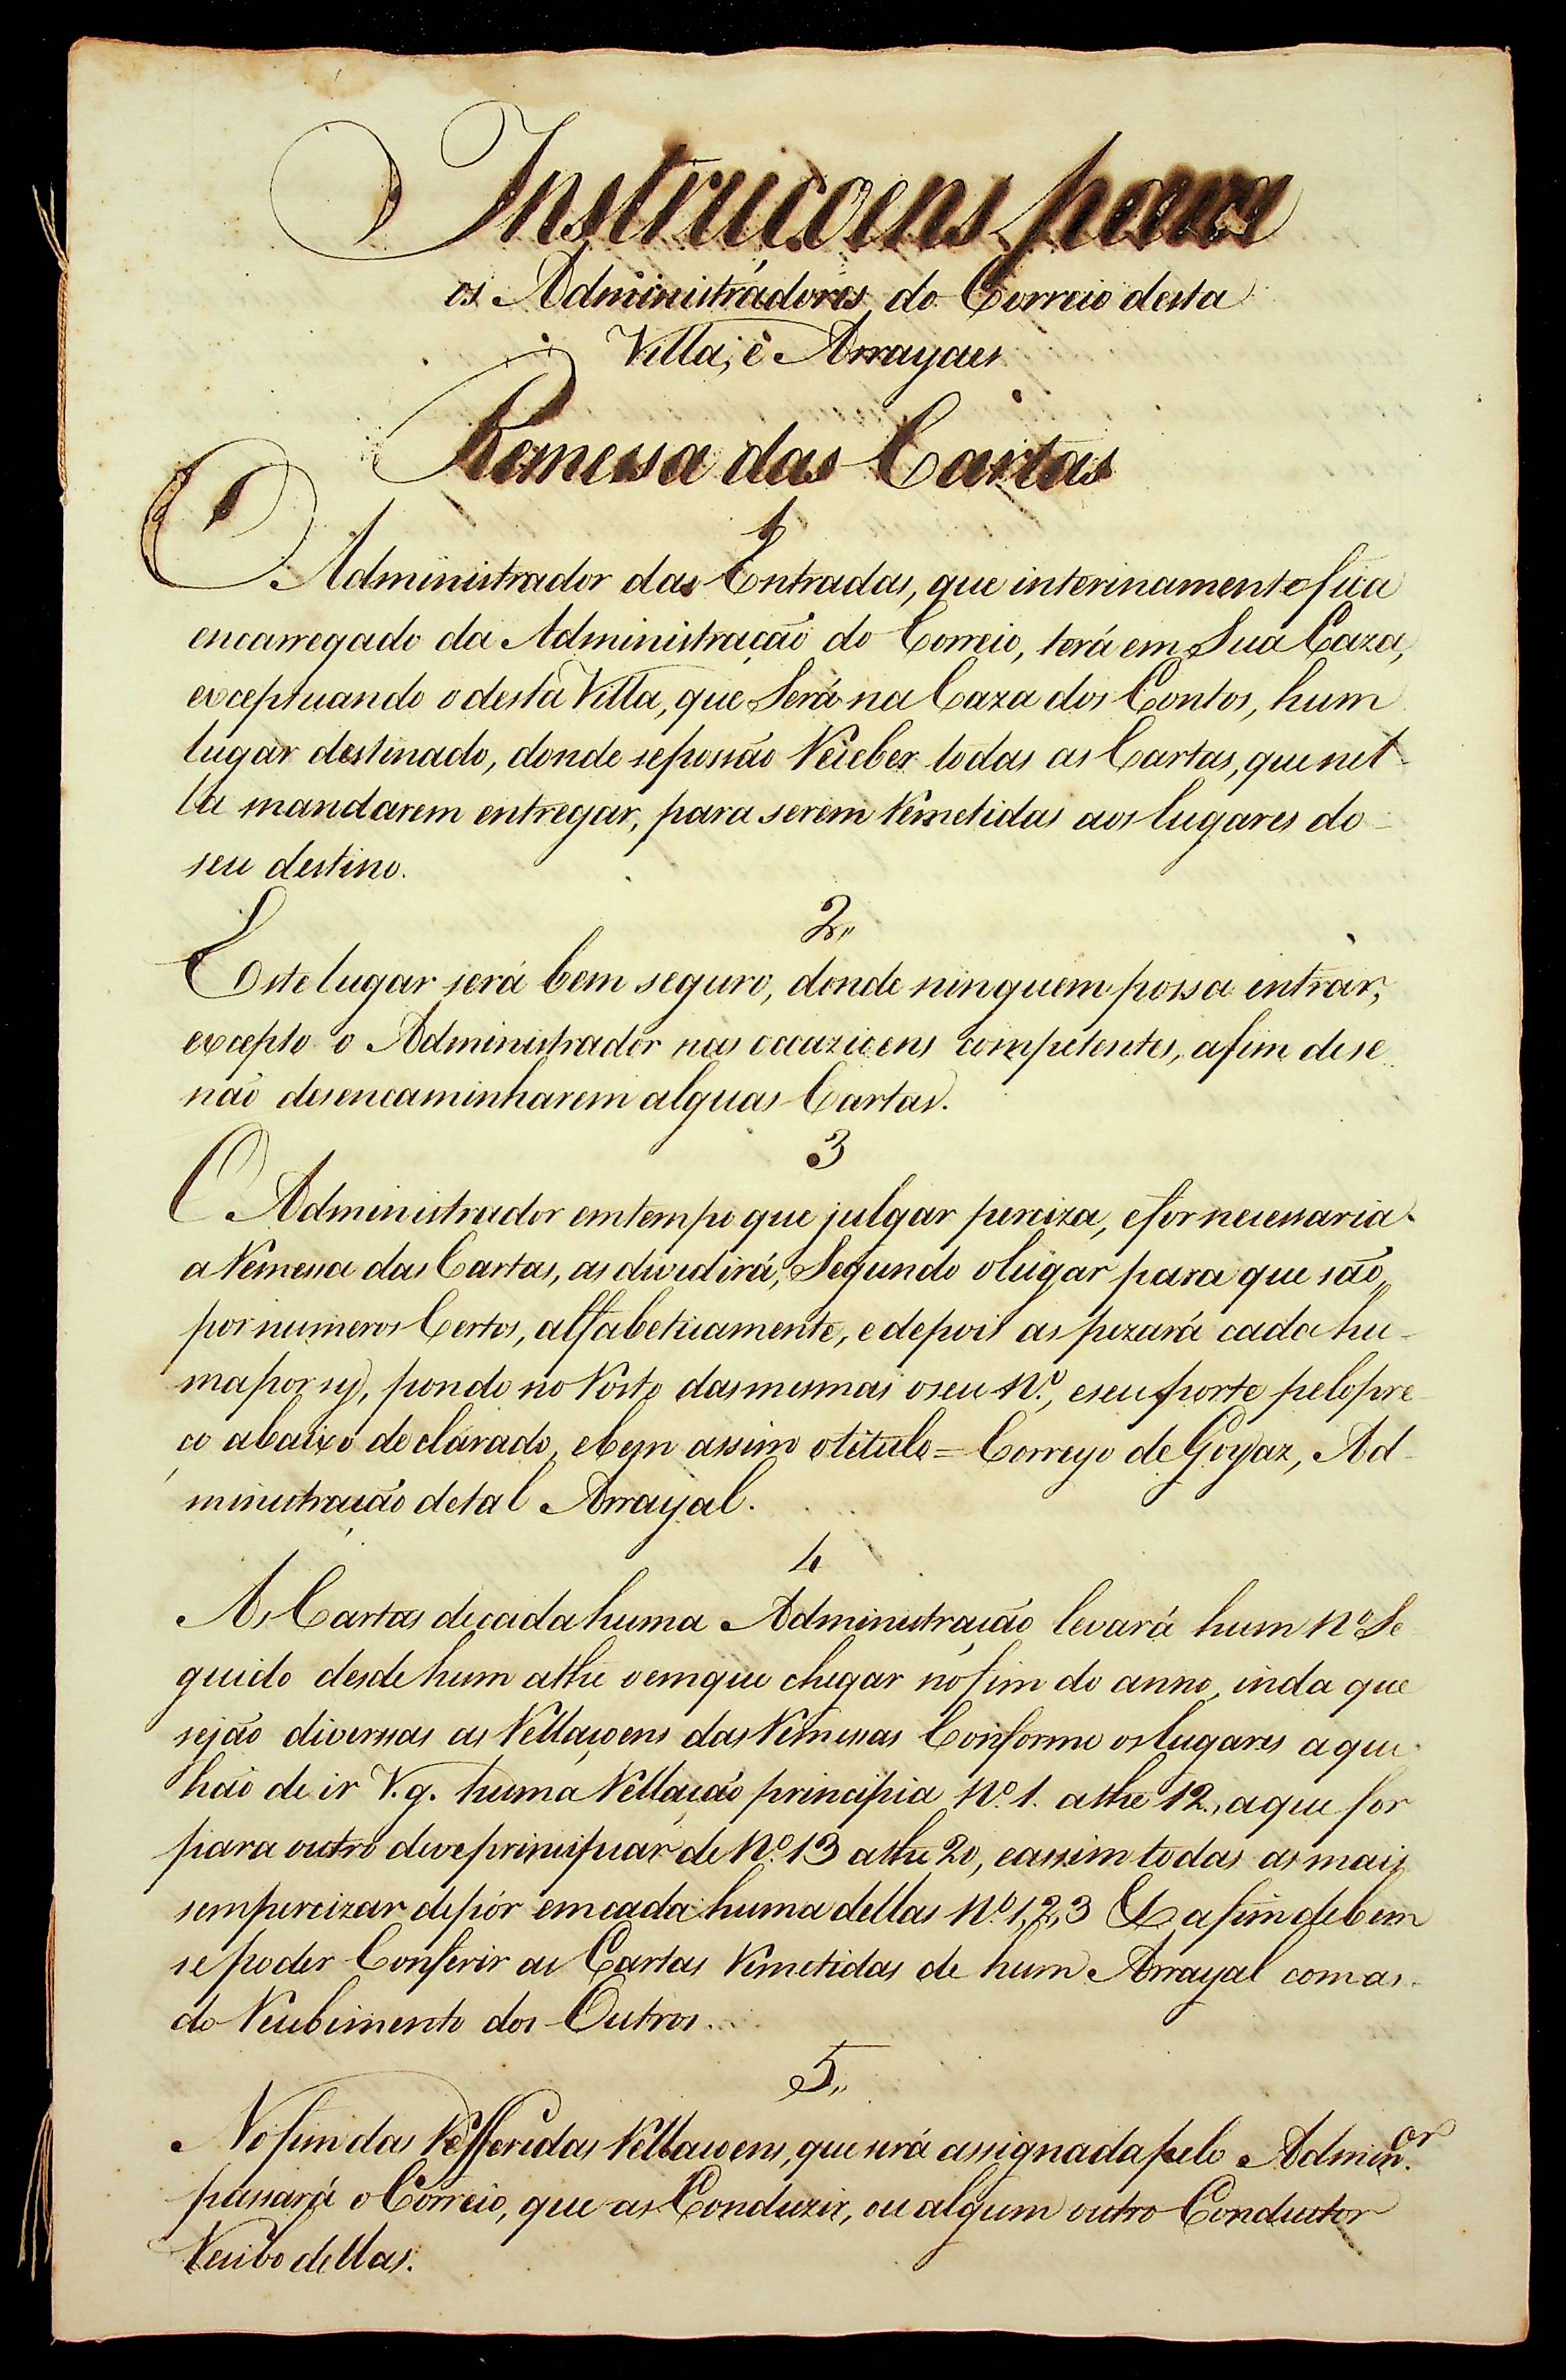 Instruçoens para
os Administradores do Correio desta
Villa, e Arrayaes
Remessa das Cartas
1
O Administrador das Entradas, que interinamente fica
encarregado da Administração do Correio, terá em Sua Caza,
exceptuando o desta Villa, que Será na Caza dos Contos, hum
lugar destinado, donde se possão Receber todas as Cartas, que nel-
la mandarem entregar, para serem Remetidas aos lugares do
seu destino.
2,,
Este lugar será bem seguro, donde ninguem possa entrar,
excepto o Administrador nas occazioens competentes, afim de se
não desencaminharem alguas Cartas.
3
O Administrador em tempo que julgar perciza, e for necessaria
a Remessa das Cartas, as dividirá, Segundo o lugar para que são,
por numeros Certos, alfabeticamente, e depois as pezará cada hu-
ma por sy, pondo no Rosto das mesmas o seu N.º, e seu porte pelo pre-
ço abaixo declarado, e bem assim o titulo = Correyo de Goyaz, Ad-
ministração de tal Arrayal.
4
As Cartas de cada huma Administração levará hum Nº Se-
guido desde hum athe o em que chegar no fim do anno, inda que
sejão diversas as Rellaçoens das Remessas Conforme os lugares a que
hão de ir V.g. huma Rellação principia N.º 1. athe 12., a que for
para outro deve principiar de N.º 13 athe 20, e assim todas as mais
sem percizar de pôr em cada huma dellas N.º 1, 2, 3 & a fim de bem
se poder Conferir as Cartas Remetidas de hum Arrayal com as
do Recebimento dos Outros.
5,,
No fim das Refferidas Rellaçoens, que será assignada pelo Admin.or
passará o Correio, que as Conduzir, ou algum outro Conductor
Recibo dellas.